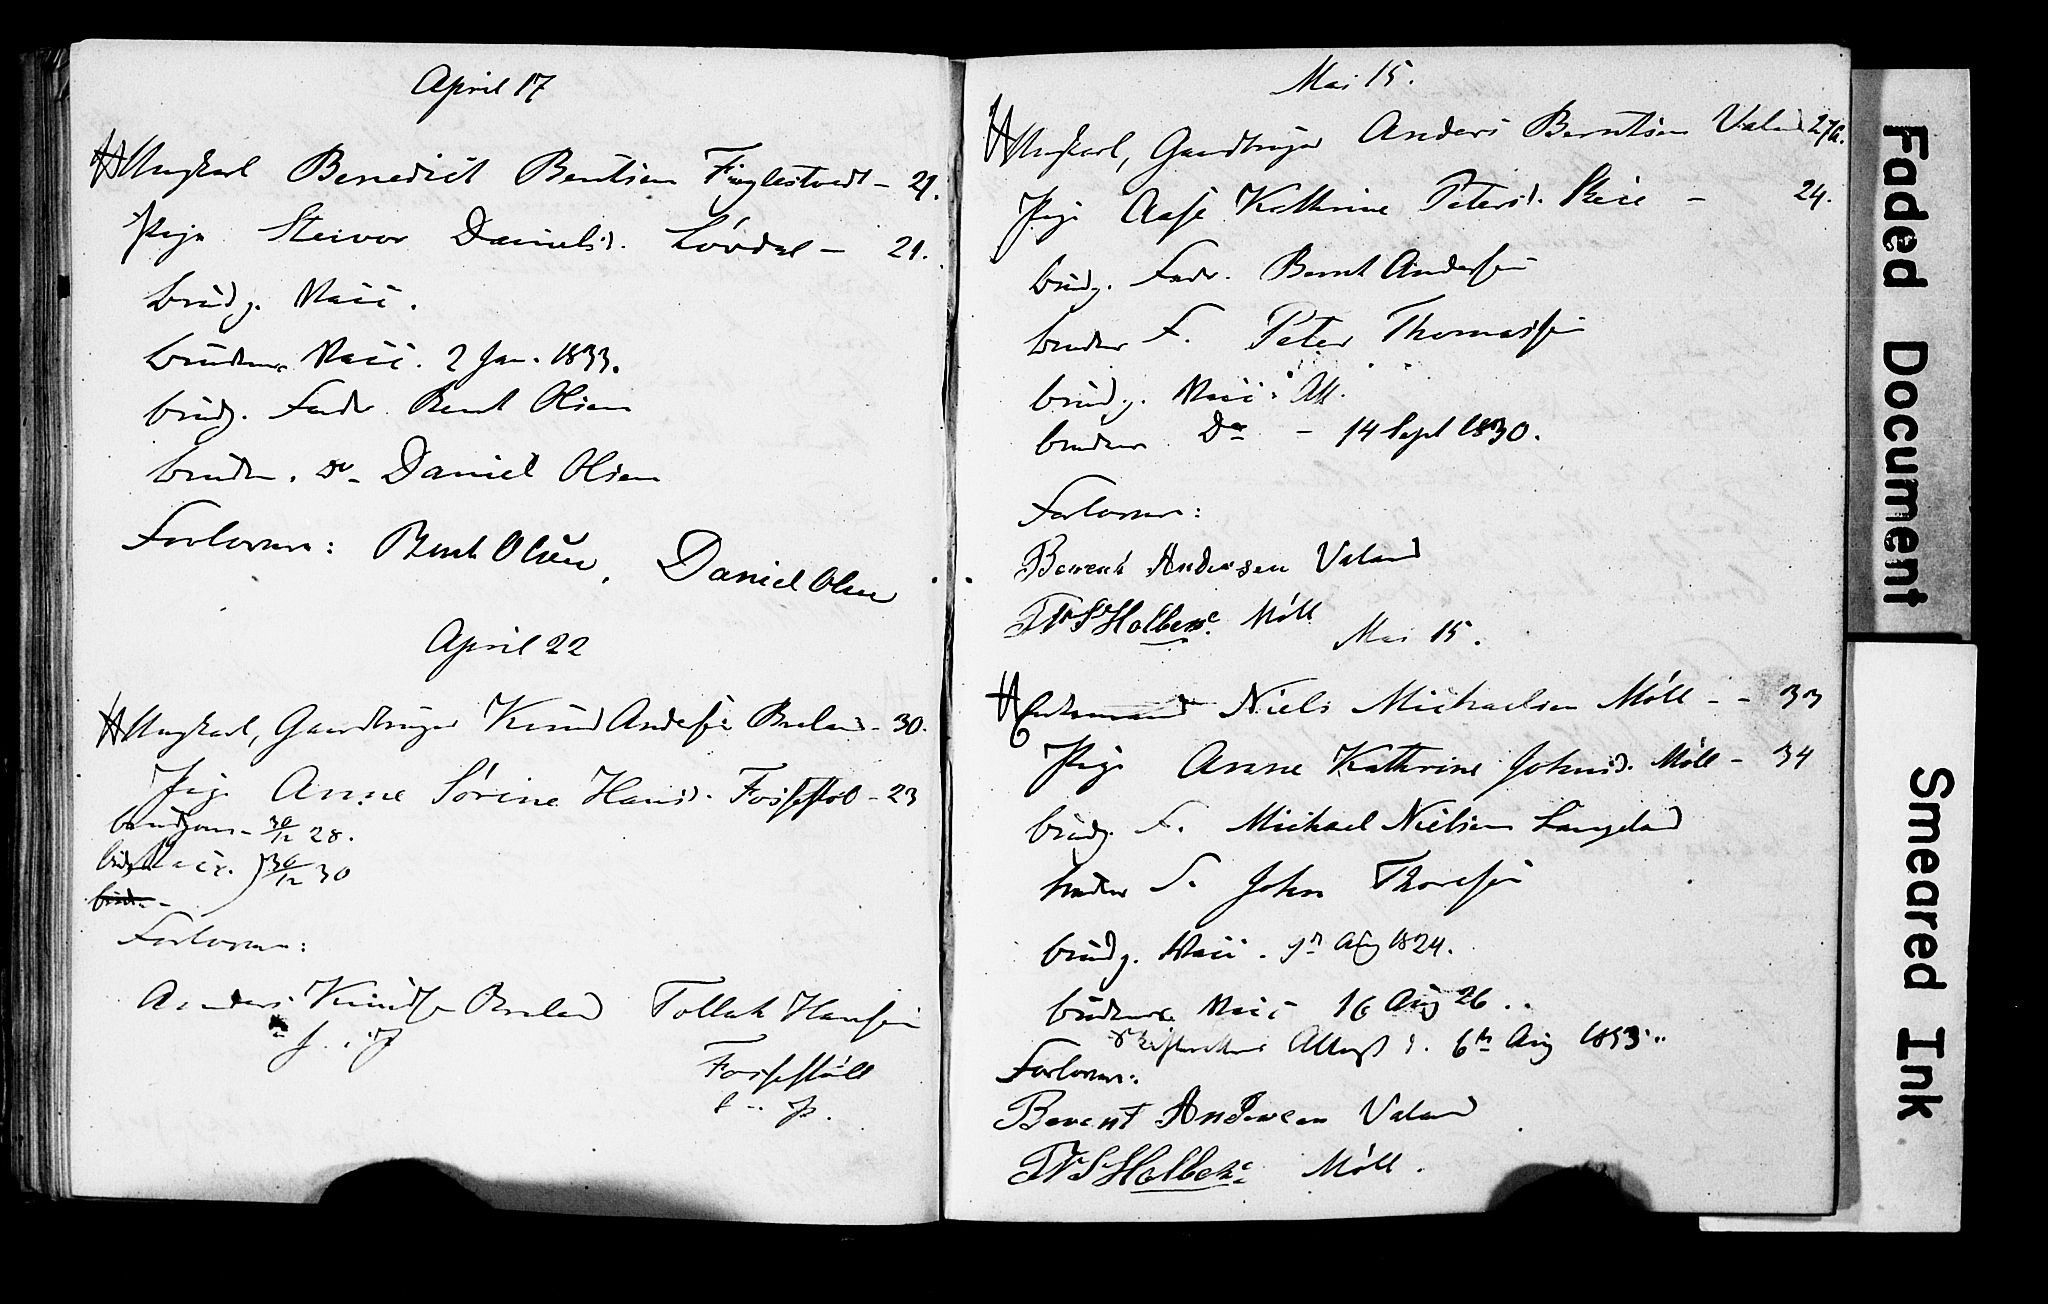 April 17
Ungkarl Benedict Bentsen Fuglestvedt - 29.
Pige Steivor Daniels d. Lövdal - 21.
brudg. Vacc.
brudens Vacc. 2 Jan. 1833.
brudg. Fader Bent Olsen
bruden. do - Daniel Olsen
Forlovere: Bent Olsen, Daniel Olsen
April 22
Ungkarl, Gaardbruger Knud Anders Breland - 30.
Pige Anne Sörine Hansd. Fosseståel - 23
brudgom - 30/12 28.
brudg Vacc. 30/12 30
Forlovere:
Anders Knudsen Breland Tollak Hansen
Fosseståll
Mai 15.
Ungkarl, Gaardbruger Anders Berntsen Valand 27 a.
Pige Aase Kathrine Petersd. - 24.
brudg. Fader. Bernt Andersen
bruden F. Peter Thomassen
brudg. Vacc. Att.
brudens Do - 14 Sept 1830.
Forlovere:
Berent Andersen Valand
Holbek Möll
Mai 15.
Enkemand Niels Michaelsen Möll - - 33
Pige Anne Kathrine Johnsd. Möll - 34
brudg. F. Michael Nielsen Langeland
bruden F. John Thoresen
brudg. Vacc. Aug 1824.
brudens Vacc 16 Aug 26.
Skifterettens Attest d. 6te Aug 1853.
Forlovere:
Berent Andersen Valand
Holbek Möll.
Faded Document
Smeared Ink